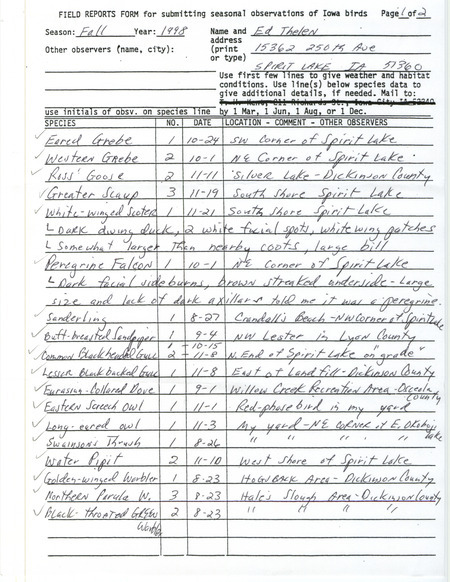 FIELD REPORTS FORM for submitting seasonal observations of Iowa birds Page 1 of 2
Season: Fall Year: 1998 Name and Ed Thelen
address
Other observers (name, city): (print 15362 250th Ave
or type)
SPIRIT LAKE IA 51360
Use first few lines to give weather and habitat
conditions. Use line(s) below species data to
give additional details, if needed. Mail to:
use initials of obsv. on species line by 1 Mar, 1 Jun, 1 Aug, or 1 Dec.
SPECIES NO. DATE LOCATION - COMMENT - OTHER OBSERVERS
Eared Grebe 1 10-24 SW Corner of Spirit Lake
Western Grebe 2 10-1 NE Corner of Spirit Lake
Ross' Goose 2 11-11 Silver Lake - Dickinson County
Greater Scaup 3 11-19 South Shore Spirit Lake
White-winged Scoter 1 11-21 South Shore Spirit Lake
Dark diving duck, 2 white facial spots, white wing patches
Somewhat larger than nearby coots, large bill
Peregrine Falcon 1 10-1 NE Corner of Spirit Lake
Dark facial sideburns, brown streaked underside - Large
size and lack of dark axillars told me it was a peregrine.
Sanderling 1 8-27 Crandall's Beach - NW Corner of Spirit Lake
Buff-breasted Sandpiper 1 9-4 NW Lester in Lyon County
Common Blackheaded Gull 1 - 10-15 2 - 11-8 N. End of Spirit Lake on "grade"
Lesser Blackbacked Gull 1 11-8 East at Landfill - Dickinson County
Eurasian-Collared Dove 1 9-1 Willow Creek Recreation Area - Osceola County
Eastern Screech Owl 1 11-1 Red-phase bird in my yard
Long-eared owl 1 11-3 My yard - NE CORNER of E. Okoboji Lake
Swainsons Thrush 1 8-26 " " " "
Water Pipit 2 11-10 West Shore of Spirit Lake
Golden-winged Warbler 1 8-23 HOGSBACK Area - Dickinson County
Northern Parula W. 3 8-23 Hale's Slough Area - Dickinson County
Black-throated GREEN Warbler 2 8-23 " " " "